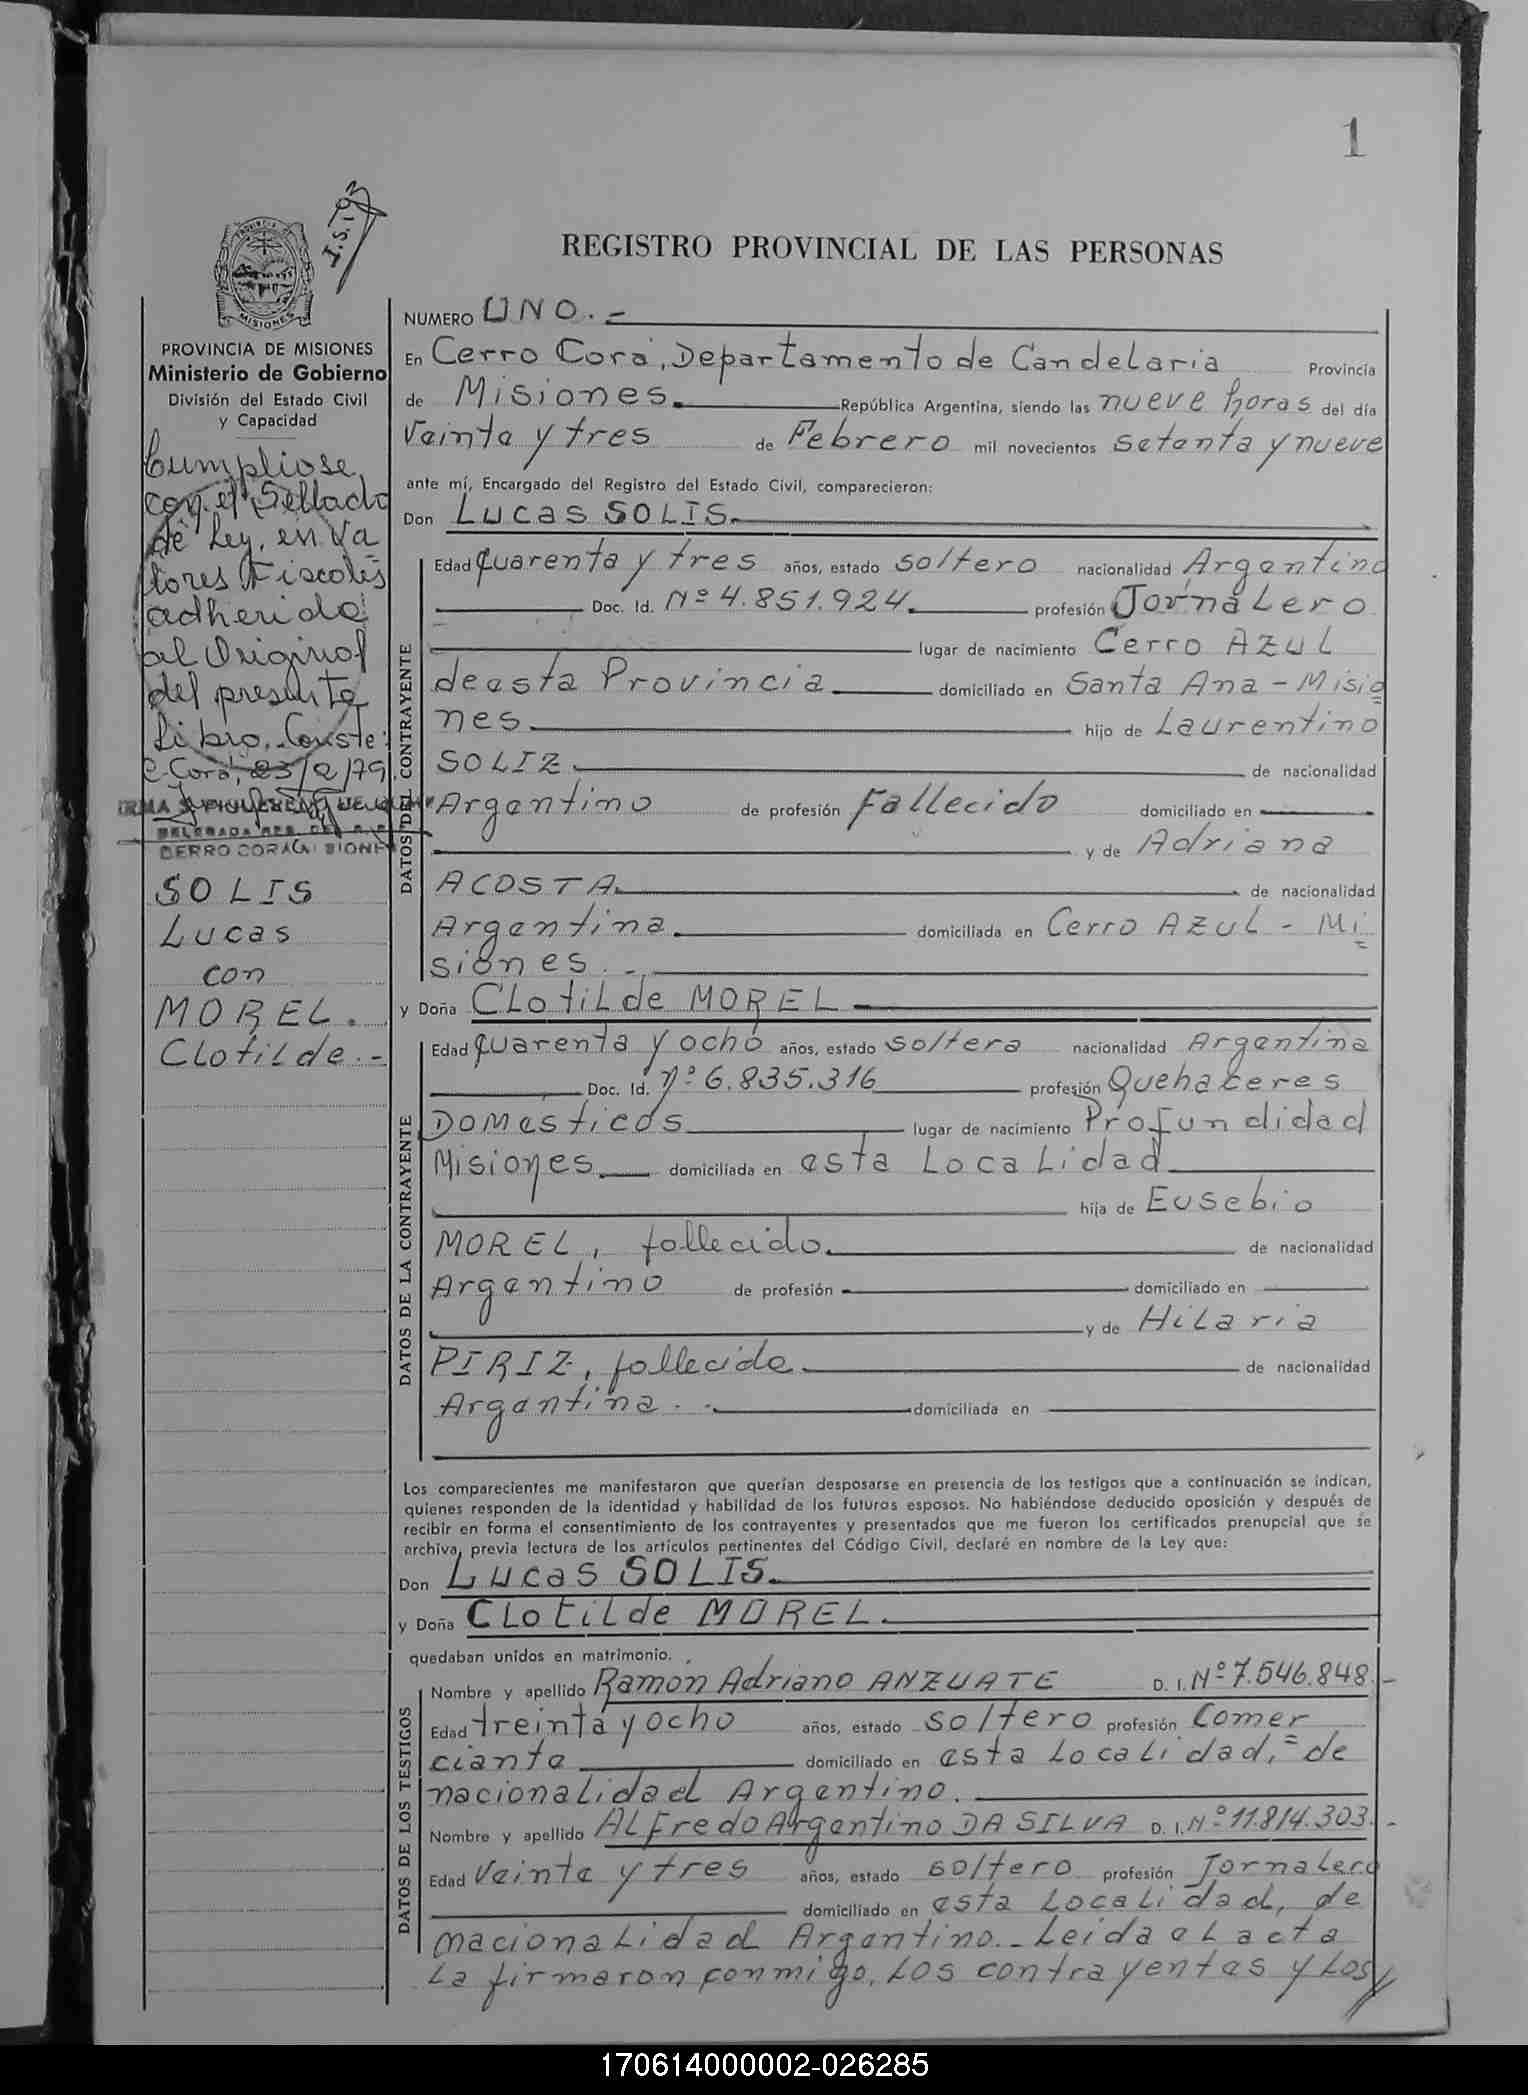 1
I.S.193
PROVINCIA DE
MISIONES
REGISTRO PROVINCIAL DE LAS PERSONAS
PROVINCIA DE MISIONES
Ministerio de Gobierno
División del Estado Civil
y Capacidad
Cumpliose
con el Sellado
de Ley, en Va
lores Fiscales
adherido
al Original
del presente
Libro, Conste:
C. Corá, 23/2/79
CERRO CORA
SOLIS
Lucas
con
MOREL.
Clotilde.-
NUMERO UNO.-
En Cerro Corá, Departamento de Candelaria Provincia
de Misiones. República Argentina, siendo las nueve horas del día
Veinte y tres de Febrero mil novecientos setenta y nueve
ante mí, Encargado del Registro del Estado Civil, comparecieron:
Don Lucas SOLIS.
DATOS DEL CONTRAYENTE
Edad quarenta y tres años, estado soltero nacionalidad Argentino
Doc. Id. Nº 4.851.924. profesión Jornalero
lugar de nacimiento Cerro AZUL
de esta Provincia domiciliado en Santa Ana - Misio
nes. hijo de Laurentino
SOLIZ. de nacionalidad
Argentino de profesión Fallecido domiciliado en
y de Adriana
ACOSTA. de nacionalidad
Argentina. domiciliada en Cerro AZUL - Mi
siones.-
y Doña Clotilde MOREL
DATOS DE LA CONTRAYENTE
Edad quarenta y ocho años, estado soltera nacionalidad Argentina
Doc. Id. Nº 6.835.316 profesión Quehaceres
Domesticos lugar de nacimiento Profundidad
Misiones. domiciliada en esta Localidad
hija de Eusebio
MOREL, fallecido. de nacionalidad
Argentino de profesión domiciliado en
y de Hilaria
PIRIZ, fallecida. de nacionalidad
Argentina.. domiciliada en
Los comparecientes me manifestaron que querían desposarse en presencia de los testigos que a continuación se indican,
quienes responden de la identidad y habilidad de los futuros esposos. No habiéndose deducido oposición y después de
recibir en forma el consentimiento de los contrayentes y presentados que me fueron los certificados prenupcial que se
archiva, previa lectura de los artículos pertinentes del Código Civil, declaré en nombre de la Ley que:
Don Lucas SOLIS.
y Doña Clotilde MOREL.
quedaban unidos en matrimonio.
DATOS DE LOS TESTIGOS
Nombre y apellido Ramón Adriano ANZUATE D. I. Nº 7.546.848.-
Edad treinta y ocho años, estado soltero profesión Comer
ciante domiciliado en esta Localidad, de
nacionalidad Argentino.
Nombre y apellido Alfredo Argentino DA SILVA D. I. Nº 11.814.303.-
Edad Veinte y tres años, estado soltero profesión Jornalero
domiciliado en esta Localidad, de
nacionalidad Argentino.- Leida el acta
la firmaron conmigo, los contrayentes y los
170614000002-026285